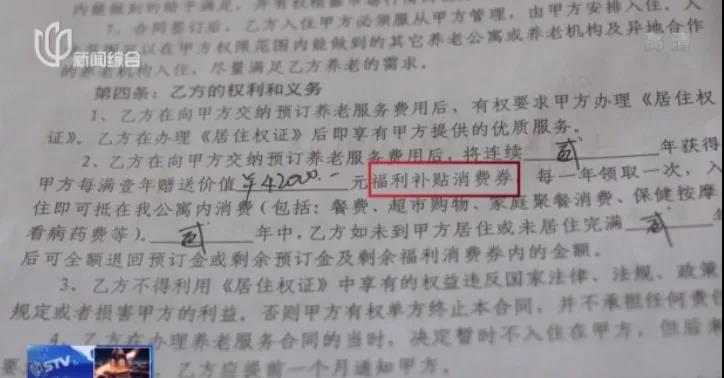 内能做到的给予满足，并有权根据市场行情
7、合同签订后，乙方入住甲方必须服从甲方管理，由甲方安排入住。入
以在甲方权限范围内能做到的其它养老公寓或养老机构及异地合作
的养老机构入住，尽量满足乙方养老的需求。
第四条：乙方的权利和义务
1、乙方在向甲方交纳预订养老服务费用后，有权要求甲方办理《居住权
证》。乙方在办理《居住权证》后即享有甲方提供的优质服务。
2、乙方在向甲方交纳预订养老服务费用后，将连续 贰 年获得
甲方每满壹年赠送价值 ¥42000.- 元福利补贴消费券，每一年领取一次，入
住即可抵在我公寓内消费（包括：餐费、超市购物、家庭聚餐消费、保健按摩
看病药费等）。 贰 年中，乙方如未到甲方居住或未居住完满 贰 年
后可全额退回预订金或剩余预订金及剩余福利消费券内的金额。
3、乙方不得利用《居住权证》中享有的权益违反国家法律、法规、政策
规定或者损害甲方的利益。否则甲方有权单方终止本合同，并不承担任何责
4、乙方在办理养老服务合同的当时，决定暂时不入住在甲方，但后
要 乙方应提前一个月通知甲方。
新闻综合
高清
STV